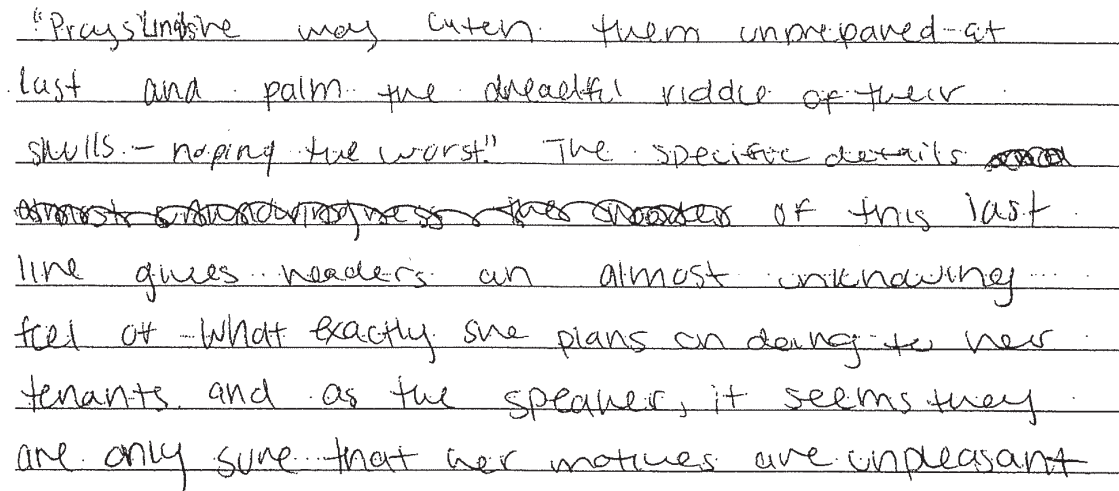 "Prays she may catch them unprepared at
last and palm the dreadful riddle of their
skulls - hoping the worst." The specific details
of this last
line gives readers an almost unknowing
feel of what exactly she plans on doing to her
tenants and as the speaker, it seems they
are only sure that her motives are unpleasant